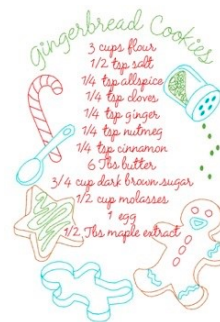 Gingerbread Cookies
3 cups flour
1/2 tsp salt
1/4 tsp allspice
1/4 tsp cloves
1/4 tsp ginger
1/4 tsp nutmeg
1/4 tsp cinnamon
6 Tbs butter
3/4 cup dark brown sugar
1/2 cup molasses
1 egg
1/2 Tbs maple extract